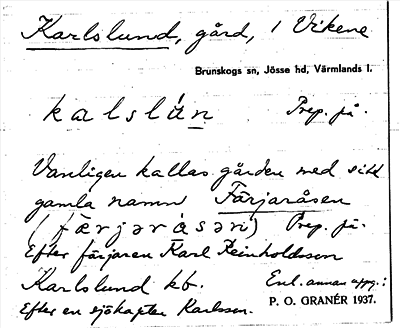 Karlslund, gård, i Vikene
Brunskogs sn, Jösse hd, Värmlands l.
kalslún Prep. på.
Vanligen kallas gården med sitt
gamla namn Färjaråsen
(færjərásəṅ) Prep. på.
Efter färjaren Karl Reinholdsson
Karlslund kb. Enl. annan uppg.:
Efter en sjökapten Karlsson. P. O. GRANÉR 1937.